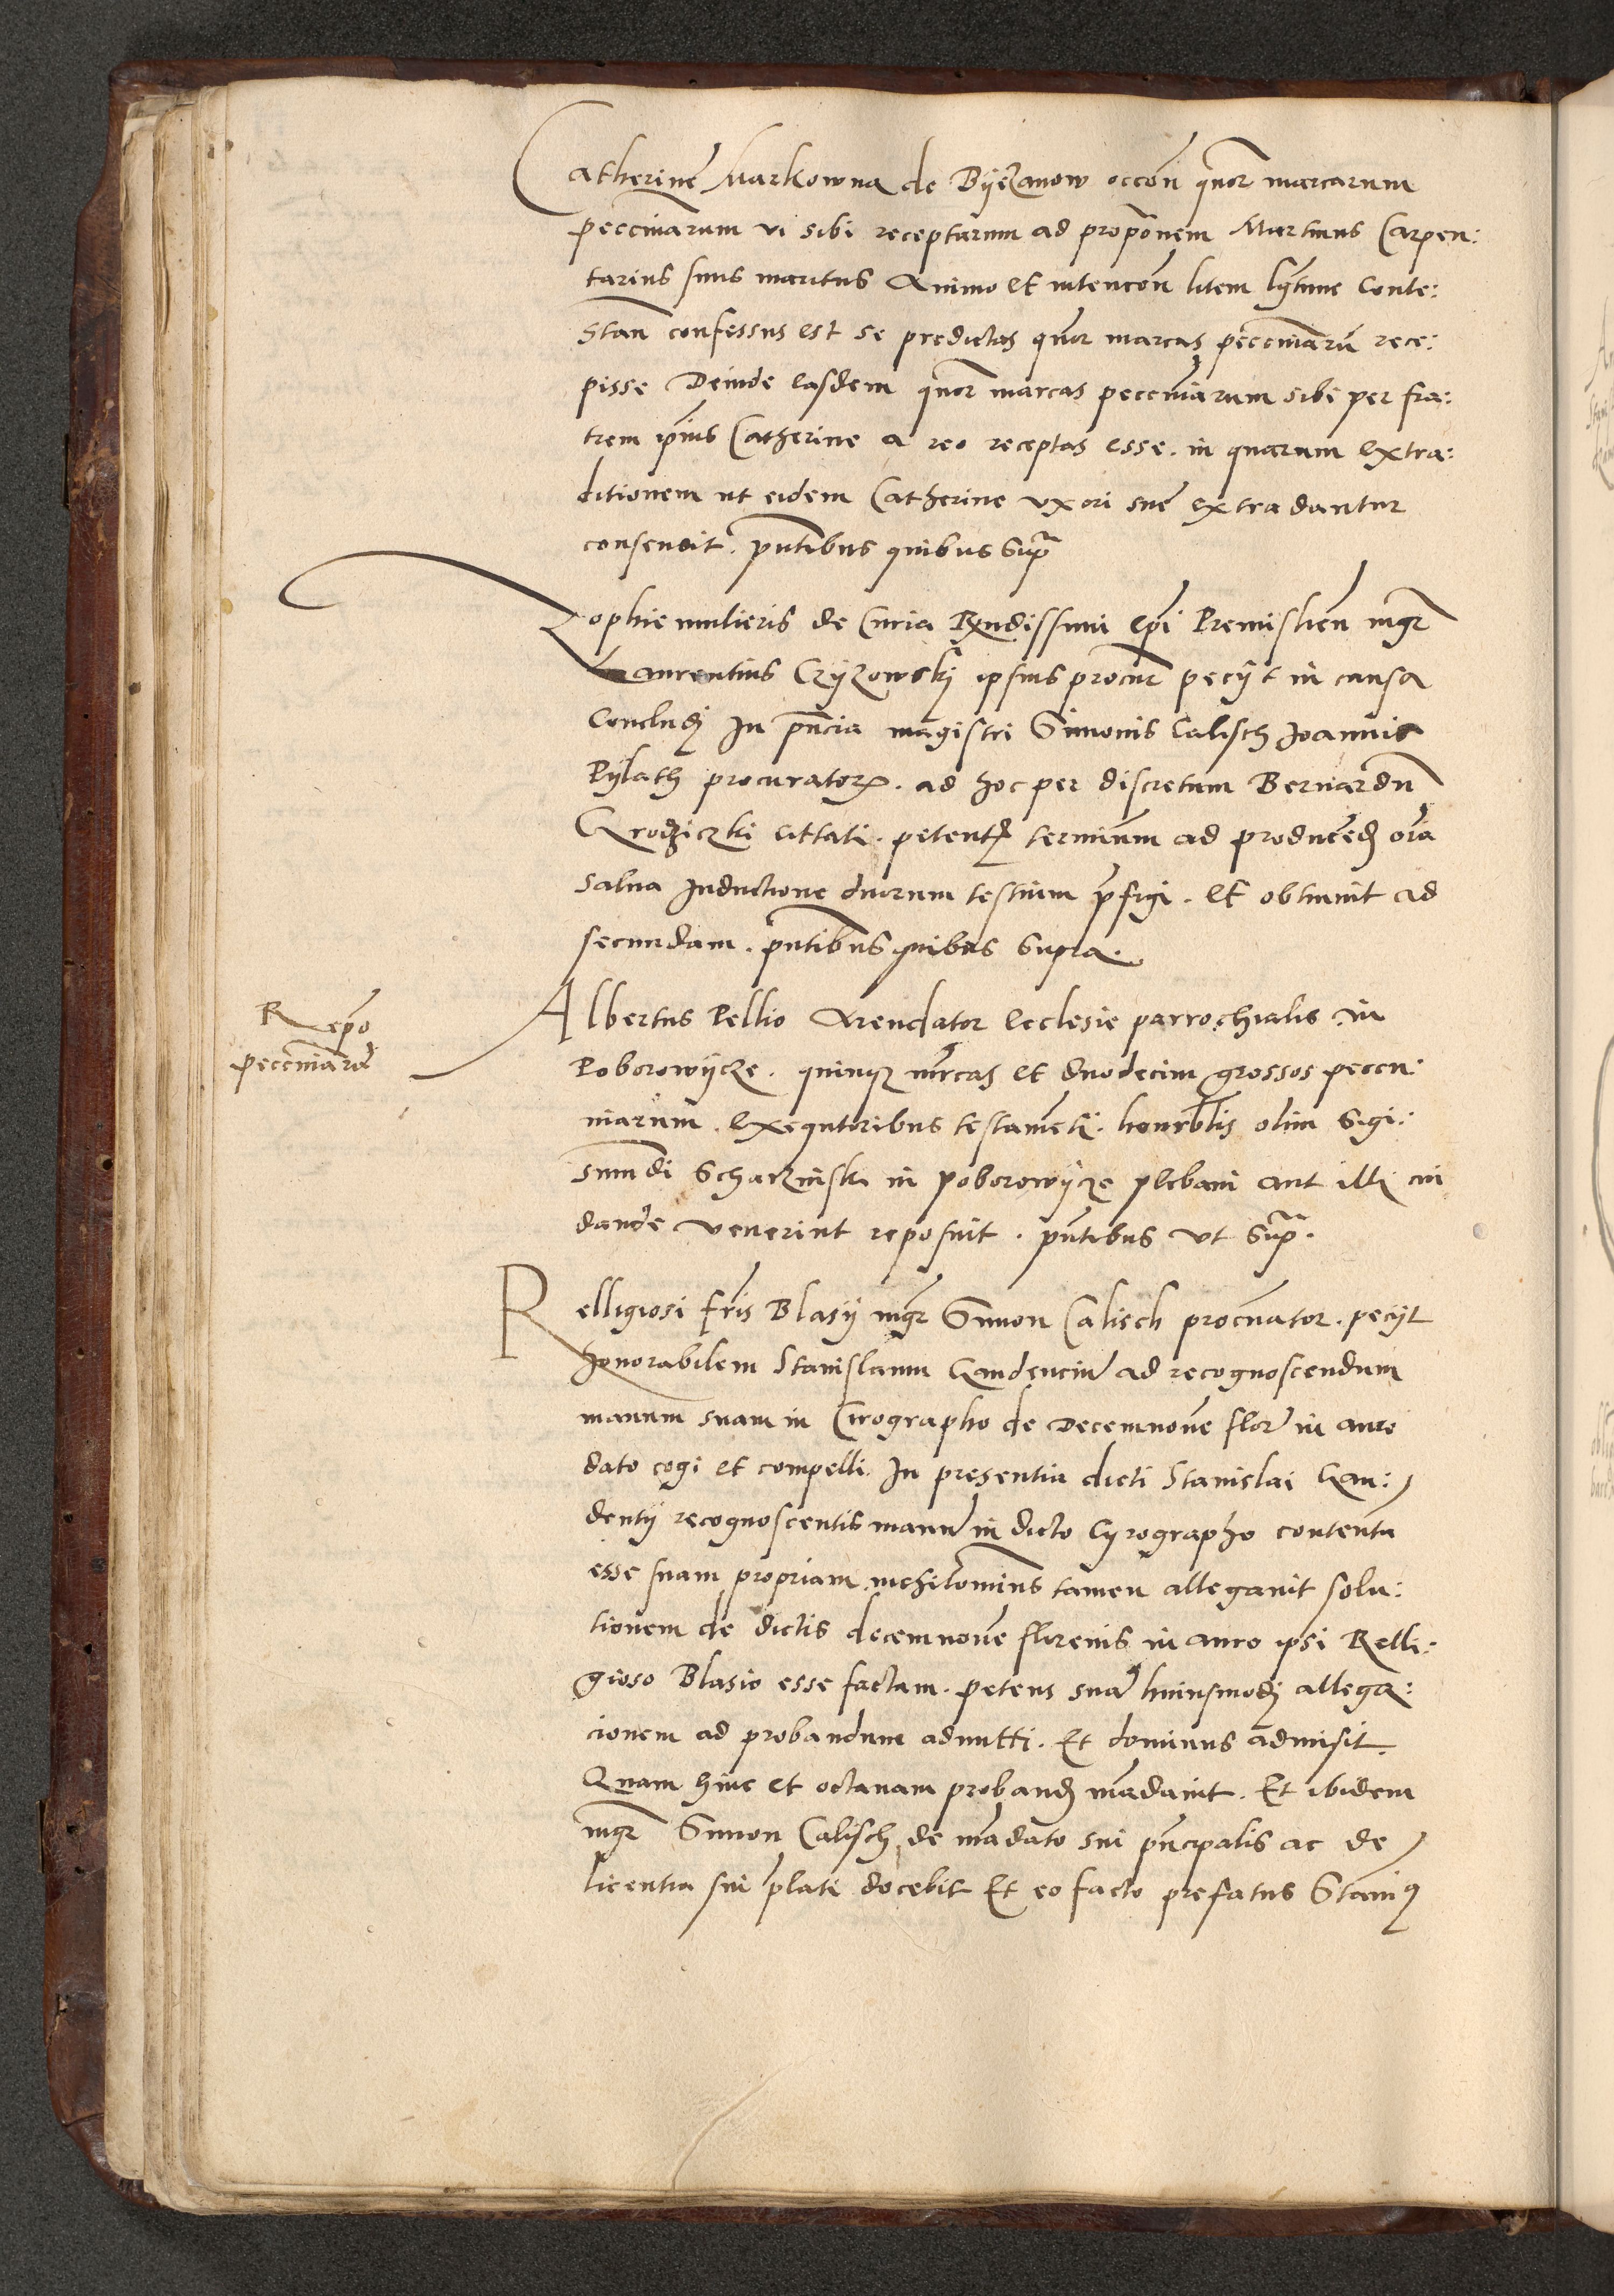 Catherine Markowna de Byezanow occōn quor marcarum
peccuniarum vi sibi receptarum ad propōnem Martinus Carpen:
tarius suus maritus Animo et intencōn litem lgtime Conte:
stan confessus est se predictas quor marcas peccuniarū rece:
pisse Deinde easdem quor marcas peccuniarum sibi per fra:
trem ipius Catherine a reo receptas esse. in quarum extra:
ditionem ut eidem Catherine uxori sue extradantur
consensit. pntibus quibus supra
Zophie mulieris de Curia Rxndissimi epi Premislien mgr
Laurentius Czyzowski ipsius procur peciit in causa
Concludi In pncia magistri Simonis Calisch Joannis
Pylath procurator. ad hoc per discretum Bernardū
Grodziczki cittati. petent terminum ad producend oīa
salua Inductione duorum testium pfigi. et obtinuit ad
secundam. pntibus quibus supra.
Repo
peccuniarū
Albertus Pellio Arendator ecclesie parrochialis in
Poborowycze. quinqz mrcas et duodecim grossos peccu:
niarum. exequtoribus testameti. honrblis olim Sigi:
smundi Scharzinski in poborowycze plebani aut illi cui
dande venerint reposuit. pntibus vt supra.
Relligiosi fris Blasy mgr Simon Calisch procuator. peciit
honorabilem Stanislaum Gaudenciū ad recognoscendum
manum suam in Cirographo de Decemnoue flor in auro
dato cogi et compelli. In presentia dicti Stanislai Gau:
denty recognoscentis manū in dicto Cyrographo contentā
esse suam propriam nichilominus tamen allegauit solu:
tionem de dictis decemnoue florenis in auro ipsi Relli:
gioso Blasio esse factam. petens suā huiusmodi allega:
cionem ad probandum admitti. Et dominus admisit.
Quam hinc et octauam proband mādauit. Et ibidem
mgr Simon Calisch de mādato sui pncipalis ac de
licentia sui plati docebit Et eo facto prefatus Stanis